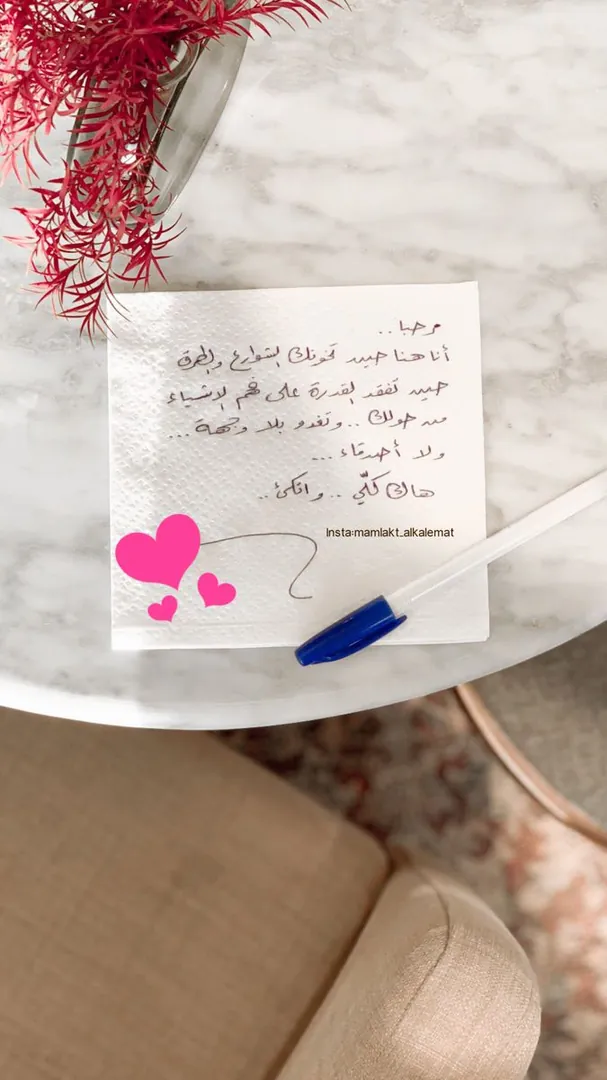 مرحبا..
أنا هنا حين تخونك الشوارع والطرق
حين تفقد القدرة على فهم الاشياء
من حولك .. وتغدو بلا وجهة ...
ولا أصدقاء ...
هاك كلّي .. واتكئ ..
Insta:mamlakt_alkalemat